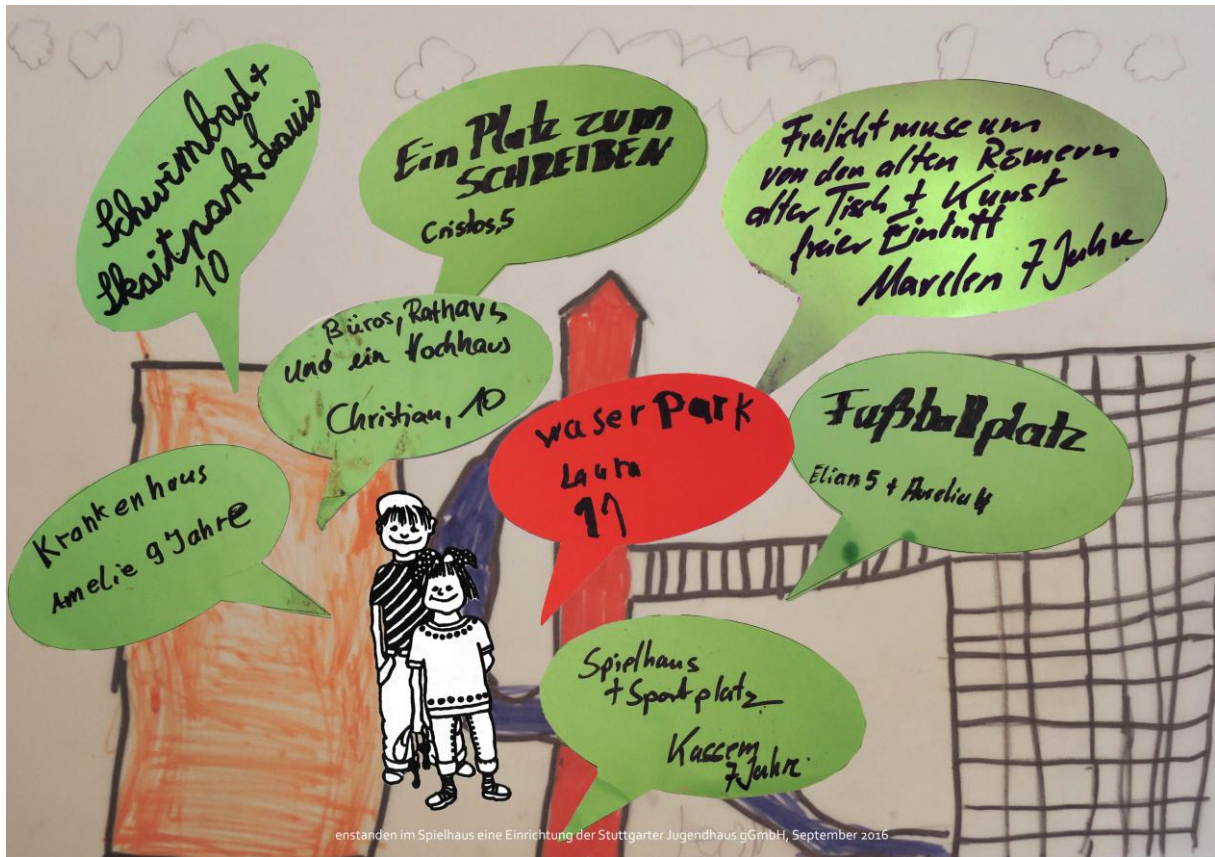 Schwimbad +
Skaitpark Louis
10
Ein Platz zum
SCHREIBEN
Cristos, 5
Freilichtmuseum
von den alten Römern
alter Tisch + Kunst
freier Eintritt
Marelen 7 Jahre
Büros, Rathaus
und ein Hochhaus
Christian, 10
waser Park
Laura
11
Fußballplatz
Elian 5 + Aurelia 4
Krankenhaus
Amelie 9 Jahre
Spielhaus
+ Sportplatz
Kassem
7 Jahre
enstanden im Spielhaus eine Einrichtung der Stuttgarter Jugendhaus gGmbH, September 2016